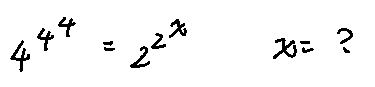 4^{4^4} = 2^{2^x}    x = ?